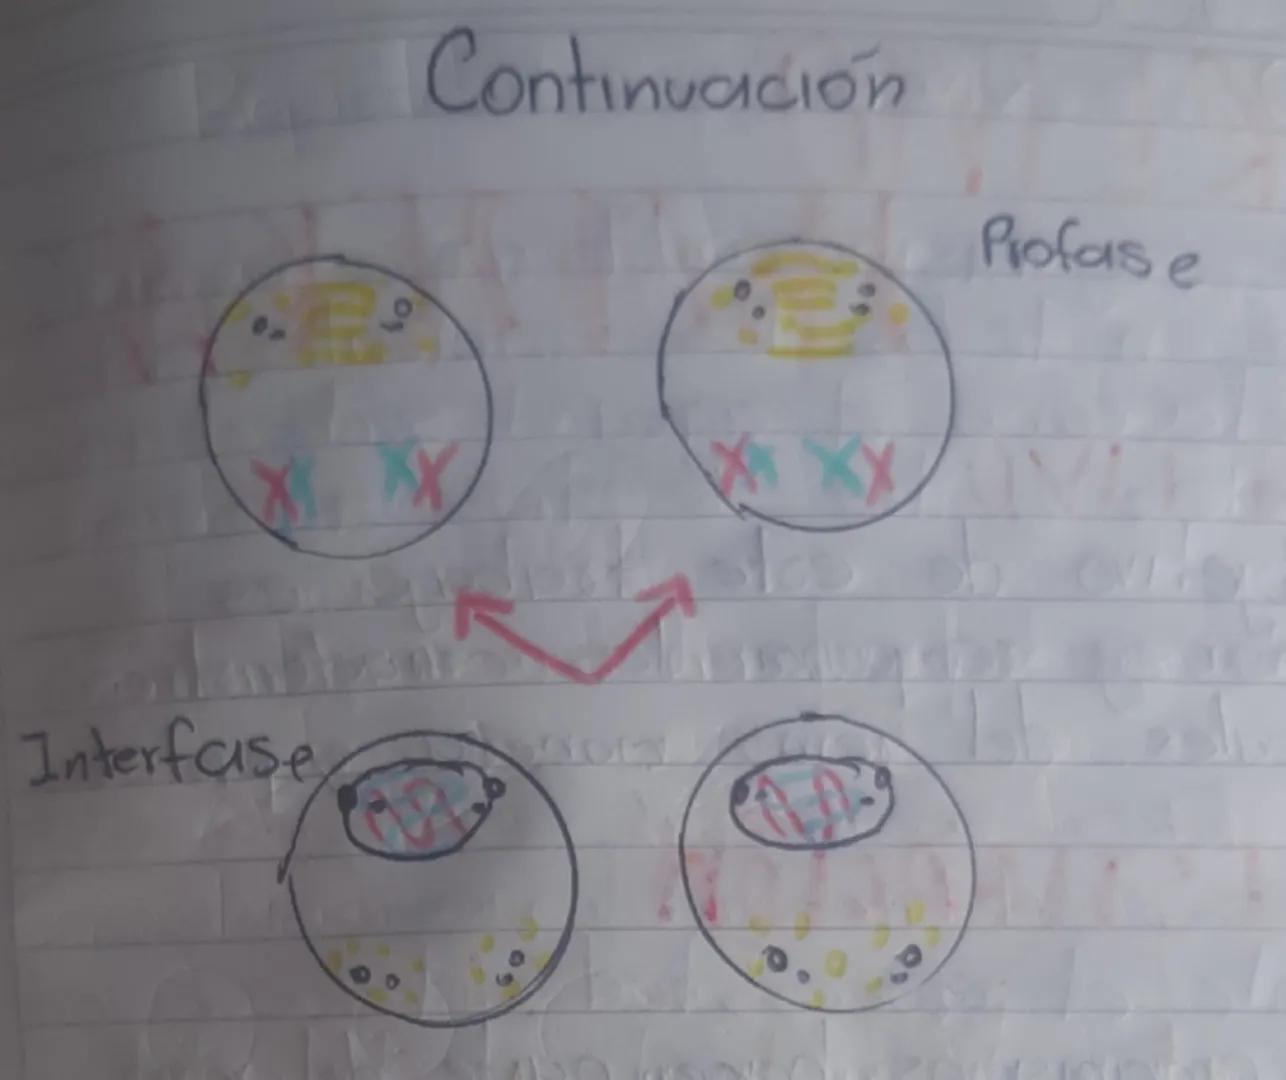 Continuación
Profase
Interfase